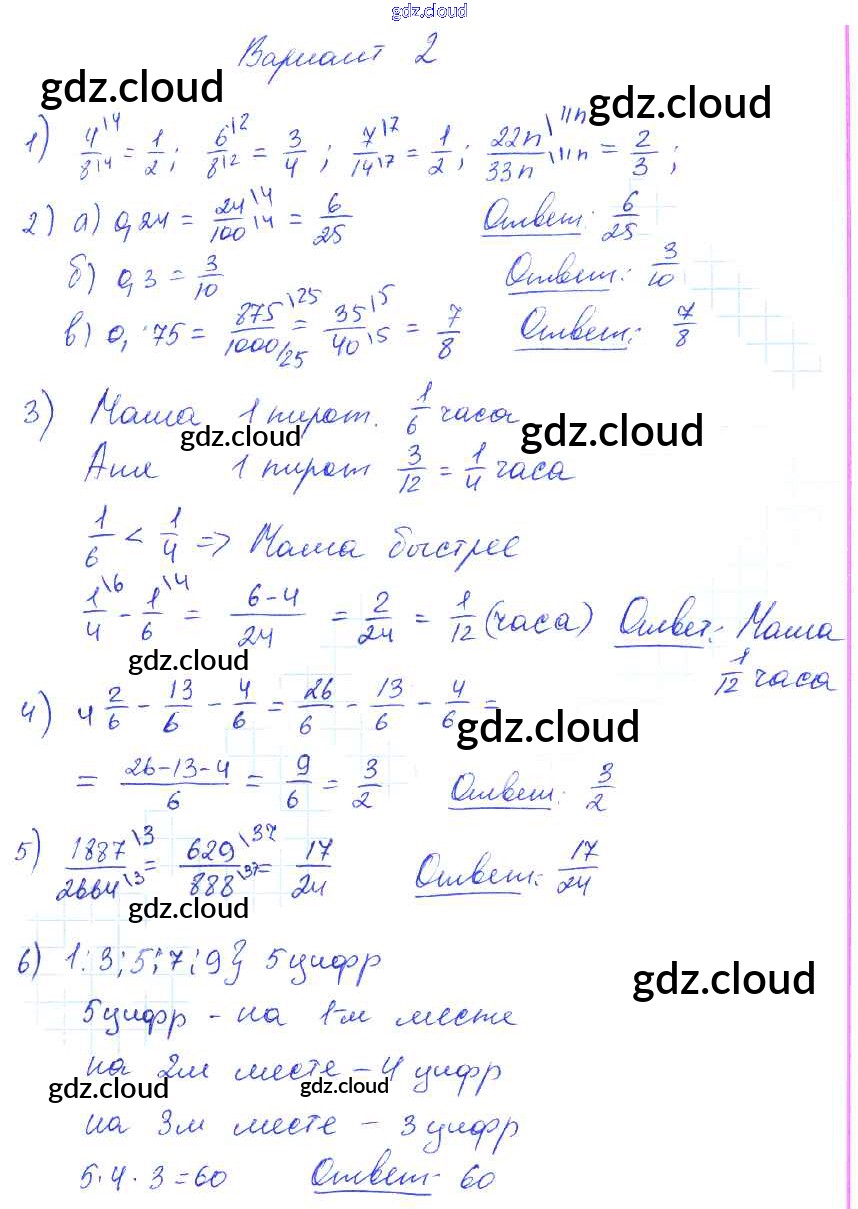 gdz.cloud
Вариант 2
gdz.cloud gdz.cloud
1) 4\4/8\4 = 1/2; 6\2/8\2 = 3/4; 7\7/14\7 = 1/2; 22n\11n/33n\11n = 2/3;
2) а) 0,24 = 24\4/100\4 = 6/25 Ответ: 6/25
б) 0,3 = 3/10 Ответ: 3/10
в) 0, 75 = 875\25/1000/25 = 35\5/40\5 = 7/8 Ответ: 7/8
3) Маша 1 пирож. 1/6 часа
gdz.cloud gdz.cloud
Аня 1 пирож 3/12 = 1/4 часа
1/6 < 1/4 => Маша быстрее
1\6/4 - 1\4/6 = 6-4/24 = 2/24 = 1/12 (часа) Ответ: Маша
1/12 часа
gdz.cloud
4) 4 2/6 - 13/6 - 4/6 = 26/6 - 13/6 - 4/6 =
gdz.cloud
= 26-13-4/6 = 9/6 = 3/2 Ответ: 3/2
5) 1887\3/2664\3 = 629\37/888\37 = 17/24 Ответ: 17/24
gdz.cloud
6) 1;3;5;7;9} 5 цифр
gdz.cloud
5 цифр - на 1-м месте
на 2м месте - 4 цифр
gdz.cloud gdz.cloud
на 3м месте - 3 цифр
5·4·3=60 Ответ 60